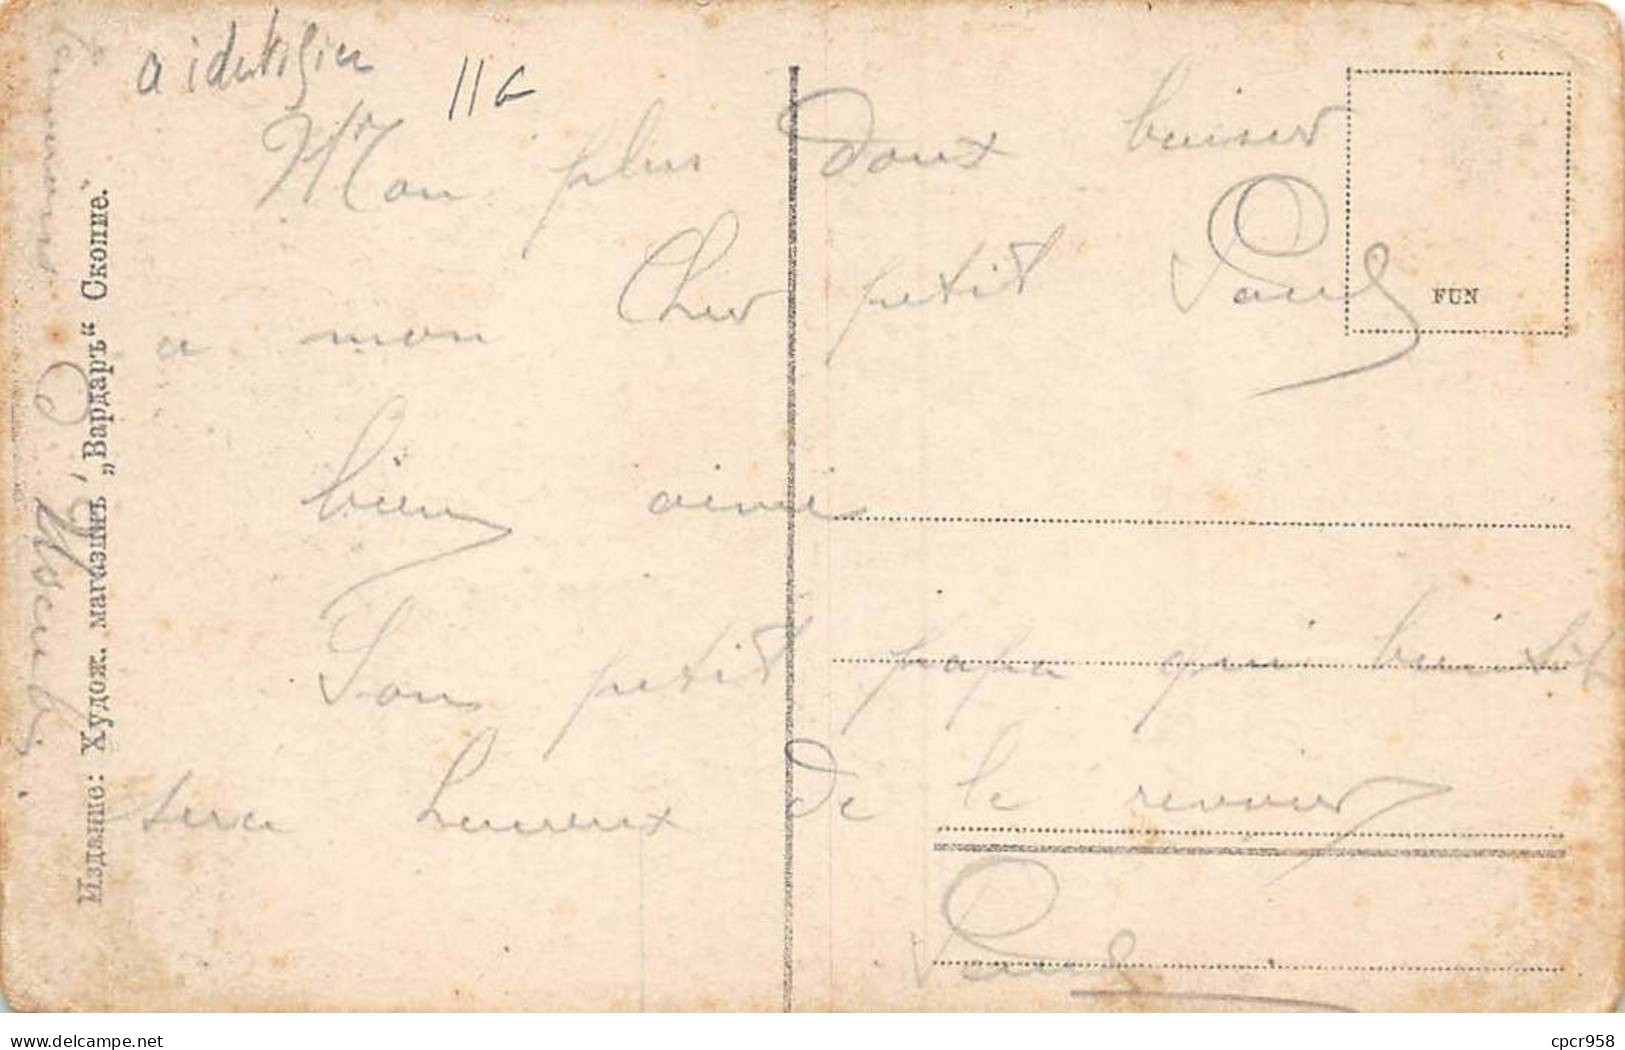 a identifier
11G
Mon plus doux baiser
a mon Cher petit Paul
bien aimé
Ton petit papa qui bientôt
sera heureux de le revoir
Paul
FUN
Издание: Худож. магазинъ „Вардаръ“ Скопие.
cpcr958